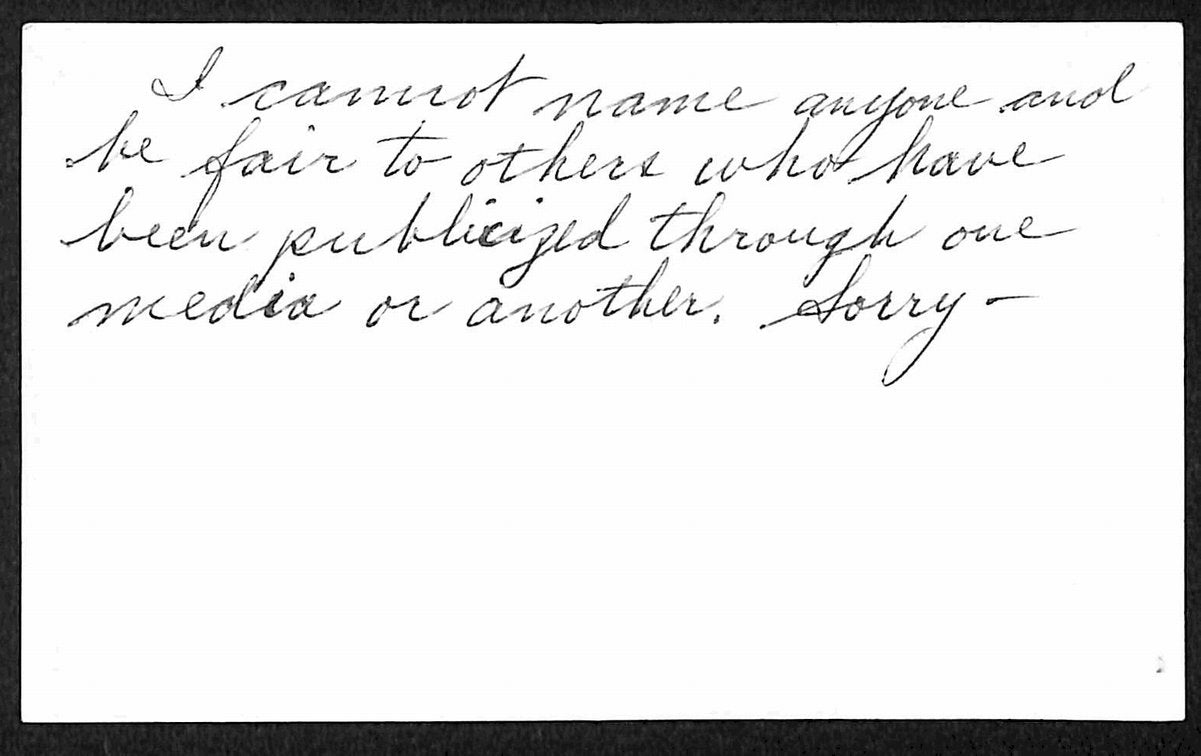 I cannot name anyone and
be fair to others who have
been publicized through one
media or another. Sorry –